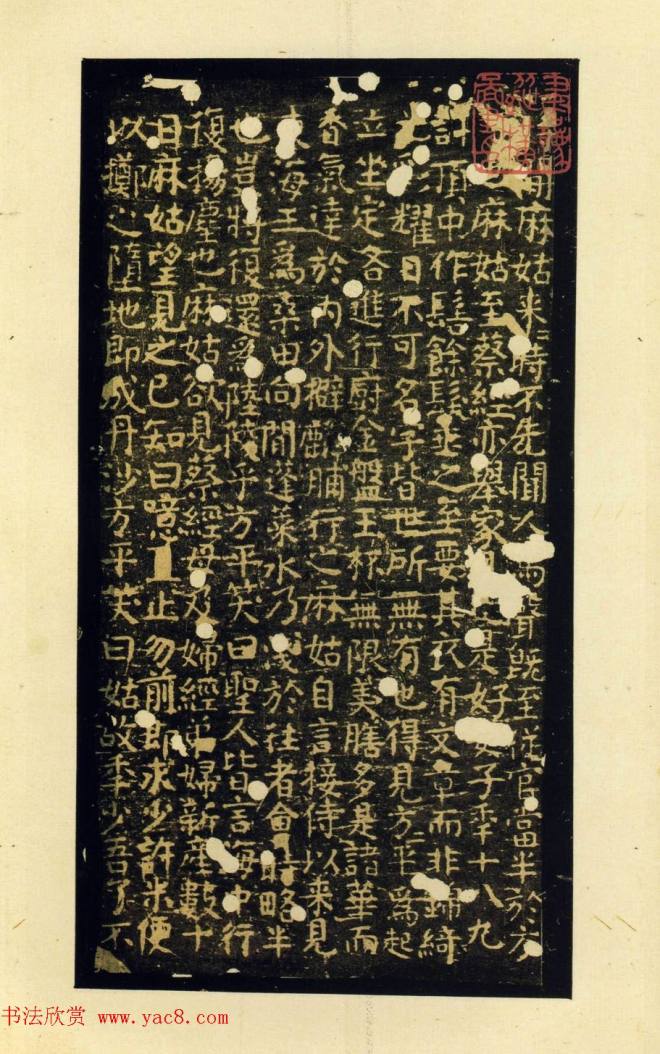 間麻姑來時不先聞人馬聲既至從官當半於方
也麻姑至蔡經亦舉家見之是好女子年十八九
許頂中作髻餘髮垂之至要其衣有文章而非錦綺
光彩耀日不可名字皆世所無有也得見方平爲起
立坐定各進行廚金盤玉杯無限美膳多是諸華而
香氣達於內外擗麟脯行之麻姑自言接侍以來見
東海三爲桑田向間蓬萊水乃淺於往者會時略半
也豈將復還爲陸陵乎方平笑曰聖人皆言海中行
復揚塵也麻姑欲見蔡經母及婦經弟婦新產數十
日麻姑望見之已知曰噫且止勿前即求少許米便
以擲之墮地即成丹沙方平笑曰姑故年少吾了不
书法欣赏 www.yac8.com